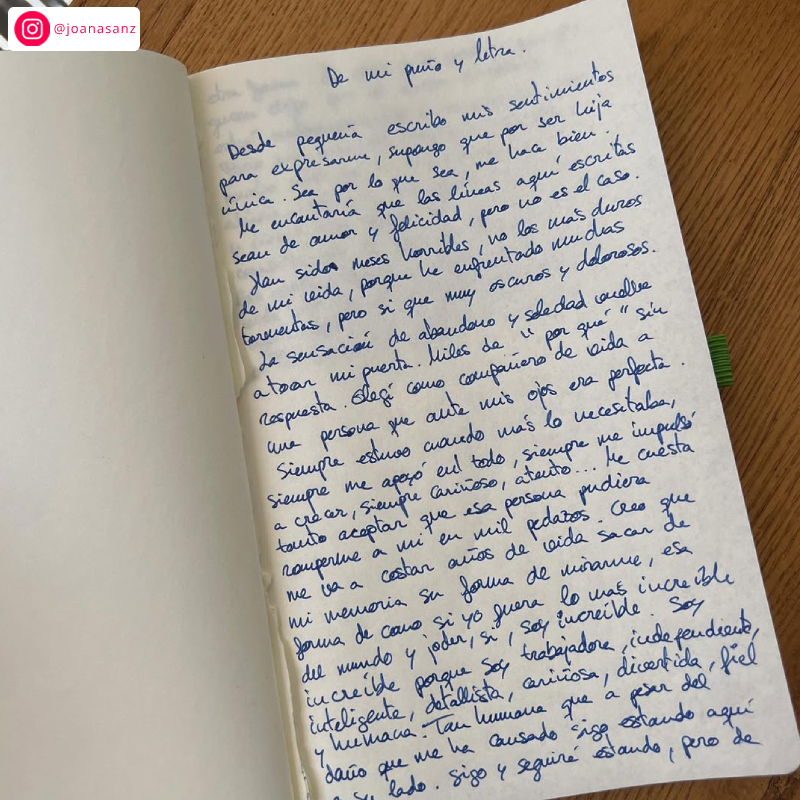 @joanasanz
De mi puño y letra.
Desde pequeña escribo mis sentimientos
para expresarme, supongo que por ser hija
única. Sea por lo que sea, me hace bien.
Me encantaría que las líneas aquí escritas
sean de amor y felicidad, pero no es el caso.
Han sido meses horribles, no los mas duros
de mi vida, porque he enfrentado muchas
tormentas, pero si que muy oscuros y dolorosos.
La sensación de abandono y soledad vuelve
a tocar mi puerta. Miles de "por qué" sin
respuesta. Elegí como compañero de vida a
una persona que ante mis ojos era perfecta.
Siempre estuvo cuando más lo necesitaba,
siempre me apoyó en todo, siempre me impulsó
a crecer, siempre cariñoso, atento... Me cuesta
tanto aceptar que esa persona pudiera
romperme a mi en mil pedazos. Creo que
me va a costar años de vida sacar de
mi memoria su forma de mirarme, esa
forma de como si yo fuera lo mas increíble
del mundo y joder, si, soy increíble. Soy
increíble porque soy trabajadora, independiente,
inteligente, detallista, cariñosa, divertida, fiel
y humana. Tan humana que a pesar del
daño que me ha causado sigo estando aquí
a su lado. Sigo y seguiré estando, pero de